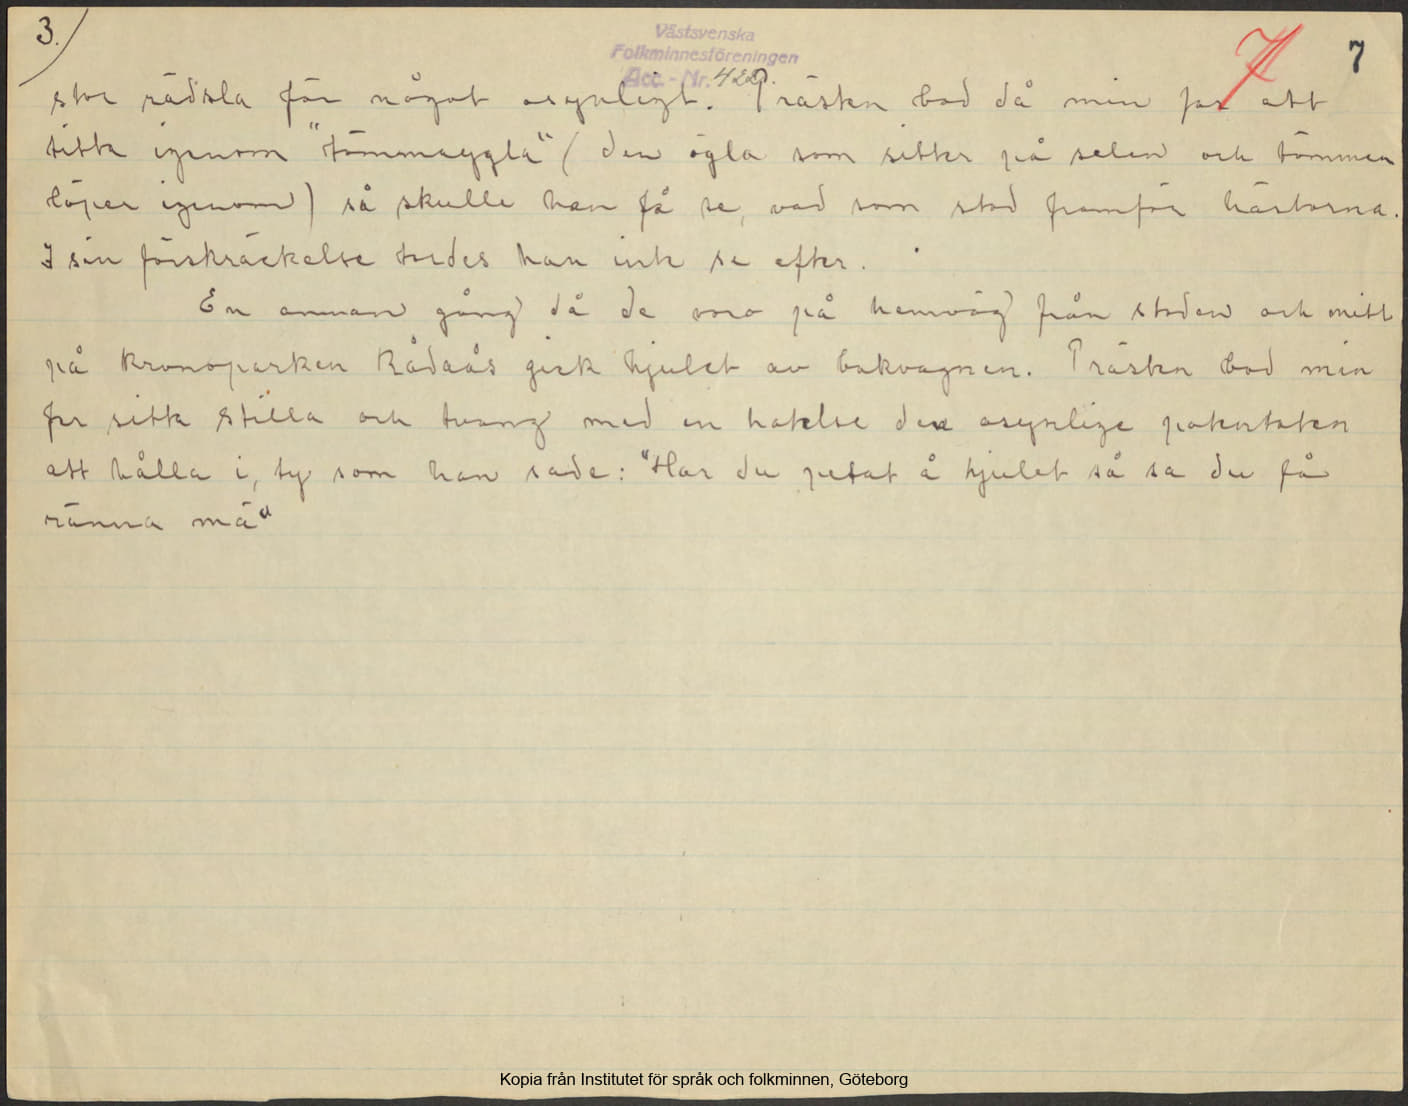 3.
Västsvenska
Folkminnesföreningen
Acc. - Nr. 422.
7
stor rädsla för något osynligt. Prästen bad då min far att
titta igenom "tömmaygla" (den ögla som sitter på selen och tömmen
löper igenom) så skulle han få se, vad som stod framför hästarna.
I sin förskräckelse tordes han inte se efter.
En annan gång då de voro på hemväg från staden och mitt
på kronoparken Rådaås gick hjulet av bakvagnen. Prästen bad min
far sitta stilla och tvang med en hotelse den osynlige potentaten
att hålla i, ty som han sade: "Har du petat å hjulet så sa du få
ränna mä"
Kopia från Institutet för språk och folkminnen, Göteborg